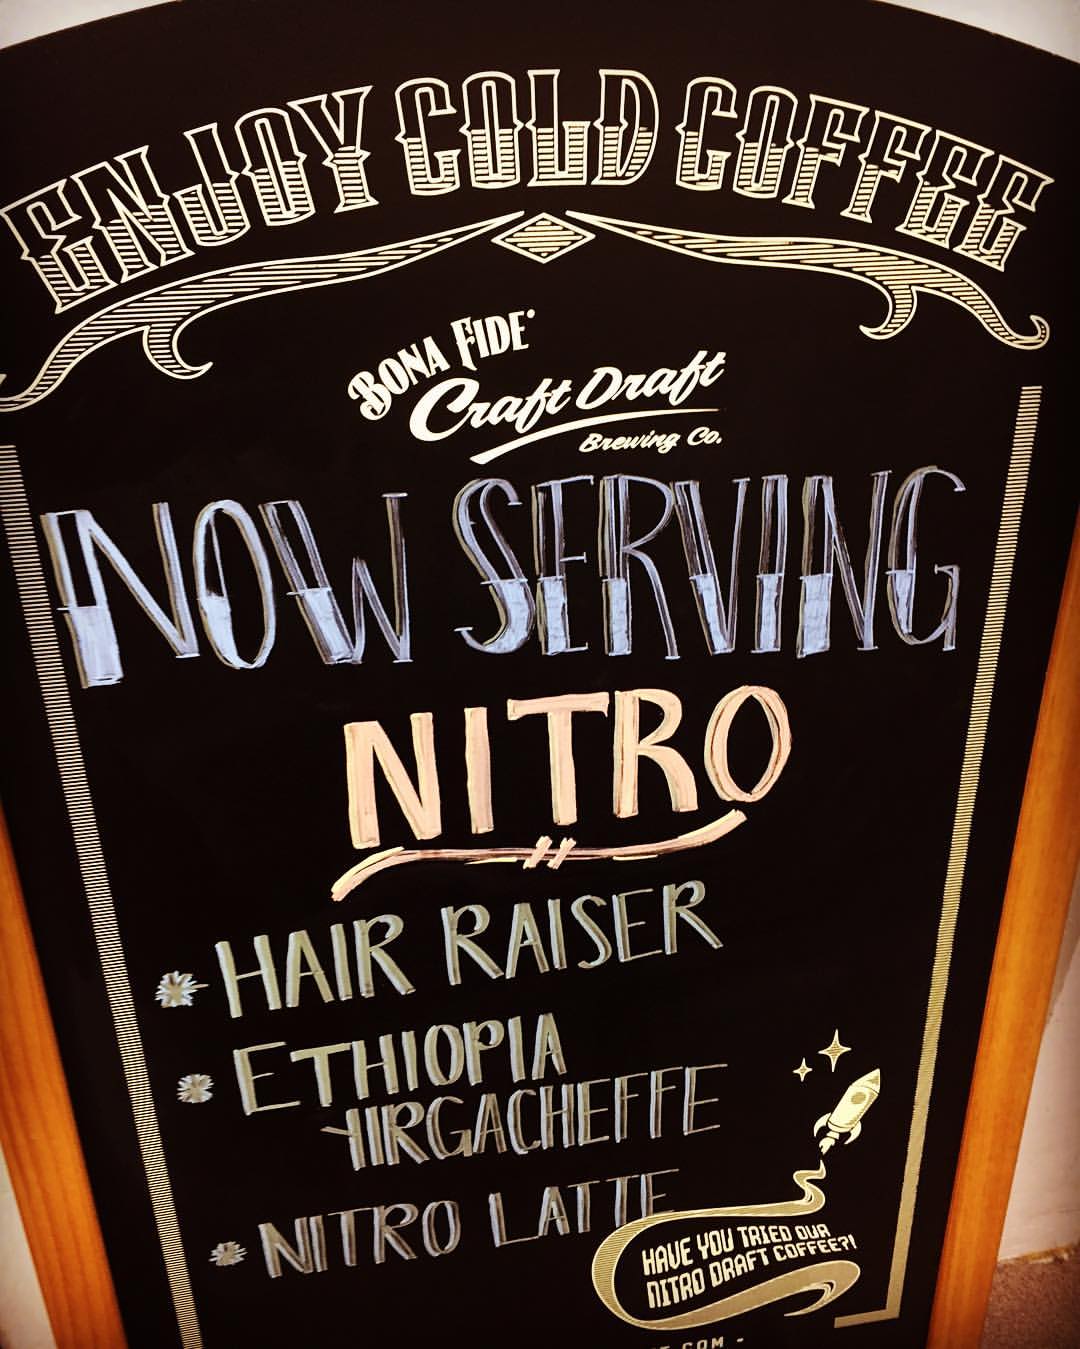 ENJOY COLD COFFEE
BONA FIDE
Craft Draft
Brewing Co.
NOW SERVING
NITRO
* HAIR RAISER
* ETHIOPIA
YIRGACHEFFE
* NITRO LATTE
HAVE YOU TRIED OUR
NITRO DRAFT COFFEE?!